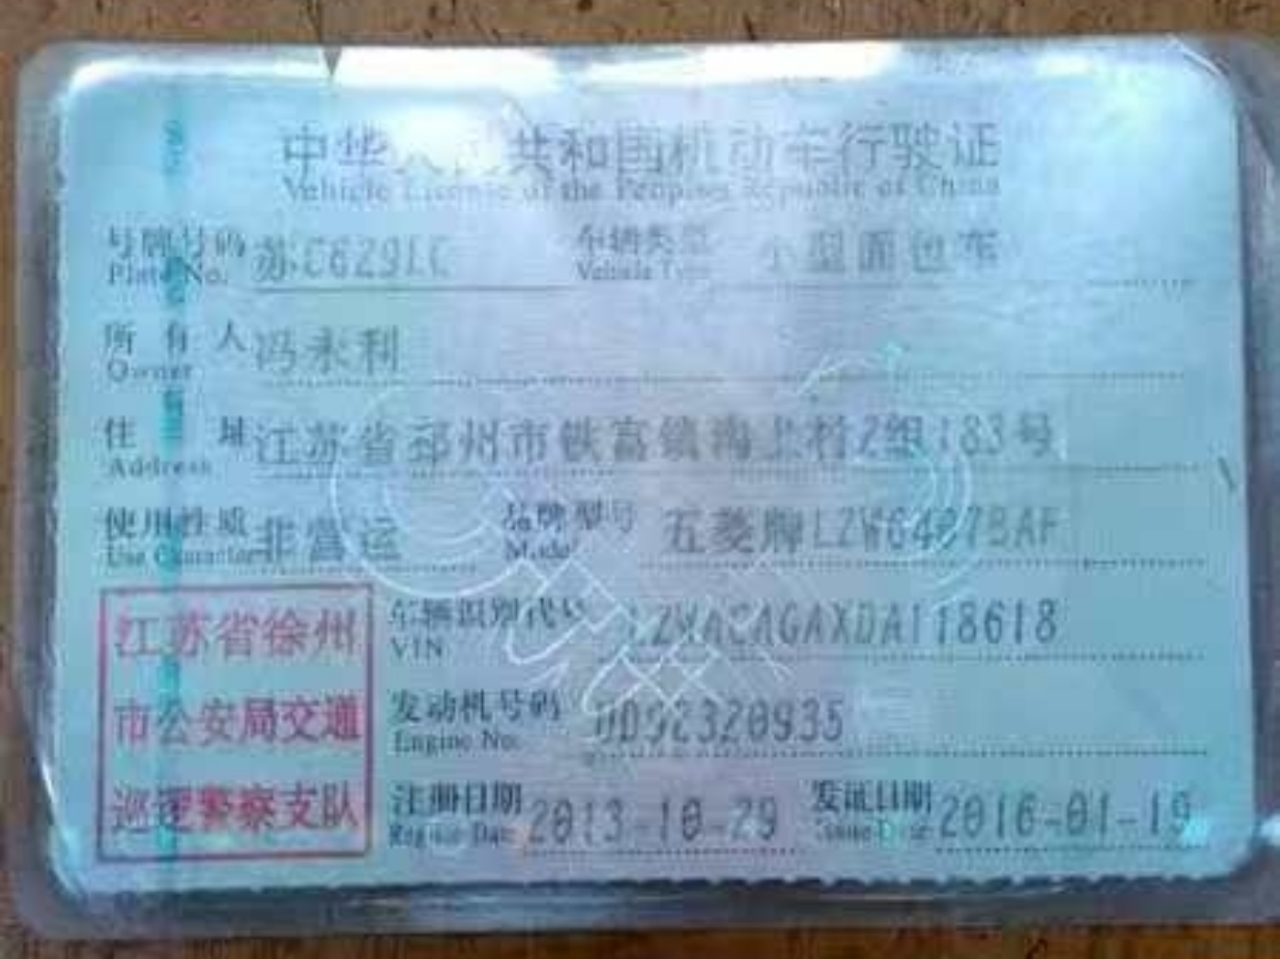 中华人民共和国机动车行驶证
Vehicle License of the People's Republic of China
号牌号码 Plate No. 苏C629LC 车辆类型 Vehicle Type 小型面包车
所有人 Owner 冯永利
住址 Address 江苏省邳州市铁富镇沟上村2组183号
使用性质 Use Character 非营运 品牌型号 Model 五菱牌LZW6407BAF
江苏省徐州
市公安局交通
巡逻警察支队
车辆识别代号 VIN LZWACAGAXDA118618
发动机号码 Engine No. UD92320935
注册日期 Register Date 2013-10-29 发证日期 Issue Date 2016-01-19